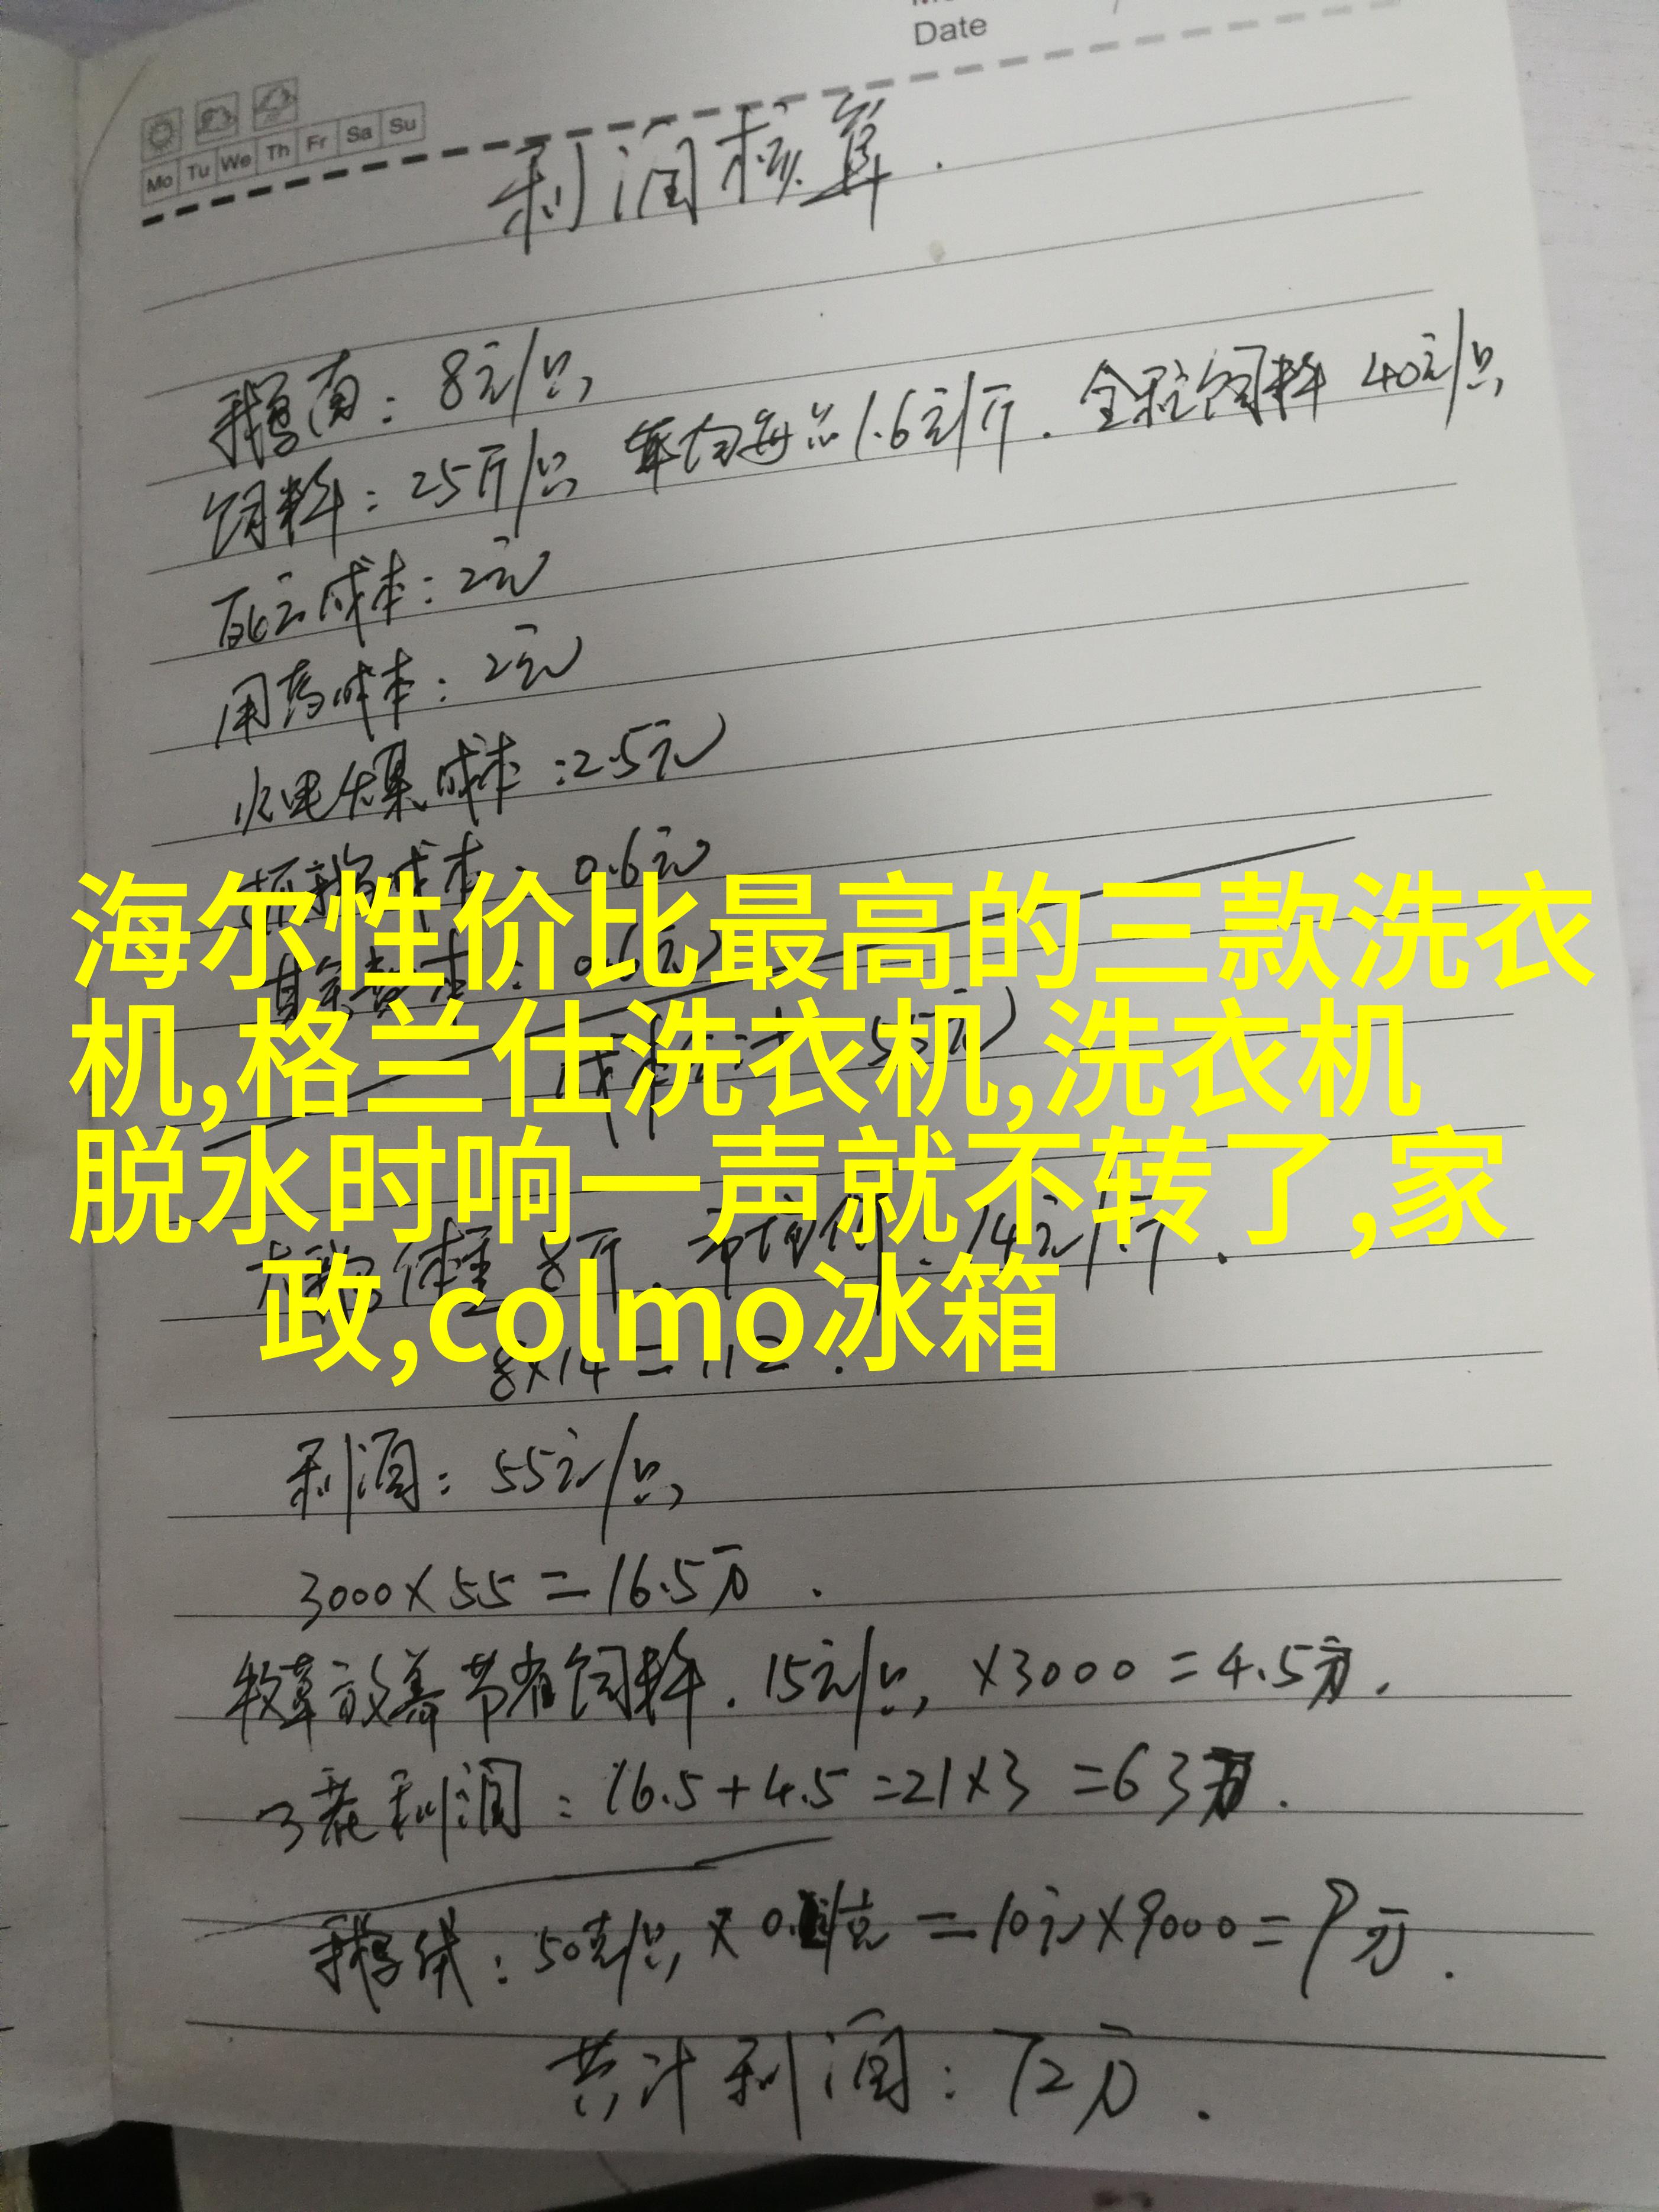 Date
Mo Tu We Th Fr Sa Su
利润核算.
鹅苗: 8元/只
饲料: 25斤/只 年均每斤1.6元/斤. 全程饲料 40元/只
死亡成本: 2元
用药成本: 2元
水电煤成本: 2.5元
成本: 0.6元
海尔性价比最高的三款洗衣
机,格兰仕洗衣机,洗衣机
脱水时响一声就不转了,家
政,colmo冰箱
大鹅体重 8斤. 14元/斤.
8×14=112.
利润: 55元/只
3000×55=16.5万.
牧草放养节省饲料. 15元/只, ×3000=4.5万.
3茬利润: 16.5+4.5=21×3=63万.
鹅绒: 50克/只 × =10元×9000=9万.
共计利润: 72万.